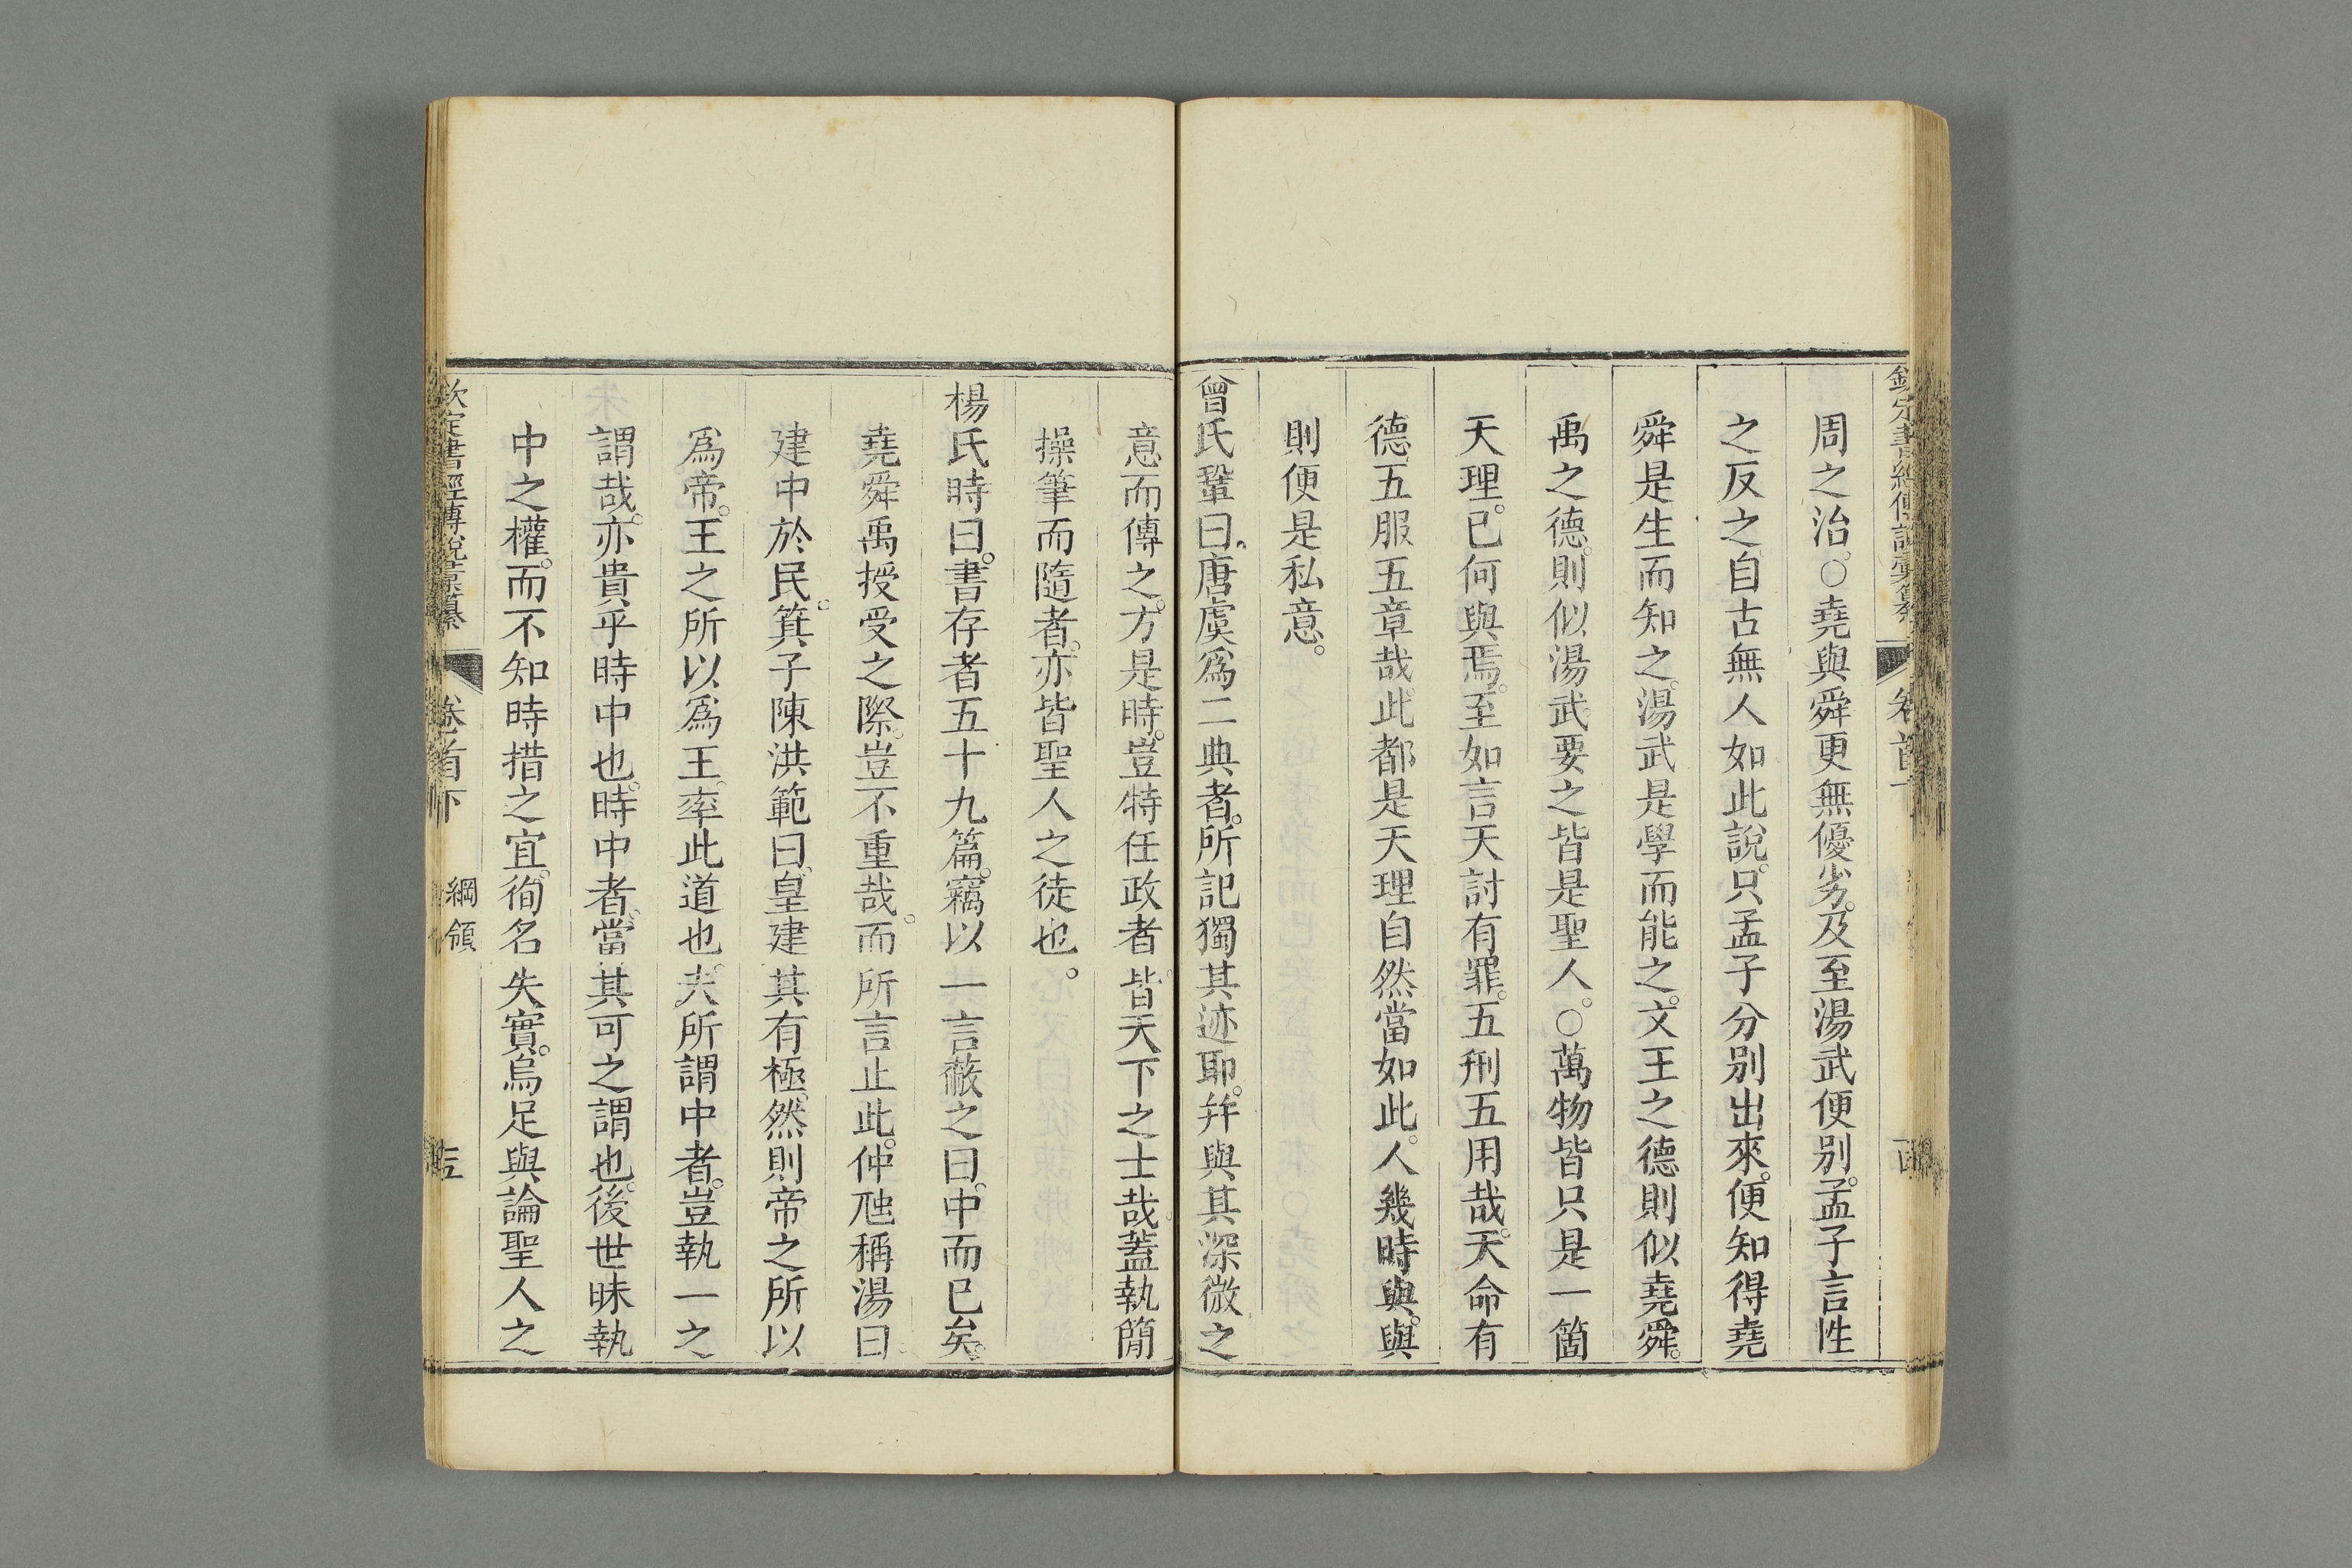 欽定書經傳說彙纂
卷首下
周之治。○堯與舜更無優劣。及至湯武便別。孟子言性
之反之。自古無人如此說。只孟子分別出來。便知得堯
舜是生而知之。湯武是學而能之。文王之德則似堯舜。
禹之德。則似湯武。要之皆是聖人。○萬物皆只是一箇
天理。已何與焉。至如言天討有罪。五刑五用哉。天命有
德。五服五章哉。此都是天理自然當如此。人幾時與。與
則便是私意。
曾氏鞏曰。唐虞爲二典者。所記獨其迹耶。幷與其深微之
意而傳之。方是時。豈特任政者。皆天下之士哉。蓋執簡
操筆而隨者。亦皆聖人之徒也。
楊氏時曰。書存者五十九篇。竊以一言蔽之曰。中而已矣。
堯舜禹授受之際。豈不重哉。而所言止此。仲虺稱湯曰
建中於民。箕子陳洪範曰。皇建其有極。然則帝之所以
爲帝。王之所以爲王。率此道也。夫所謂中者。豈執一之
謂哉。亦貴乎時中也。時中者。當其可之謂也。後世昧執
中之權。而不知時措之宜。徇名失實。烏足與論聖人之
欽定書經傳說彙纂
卷首下
綱領